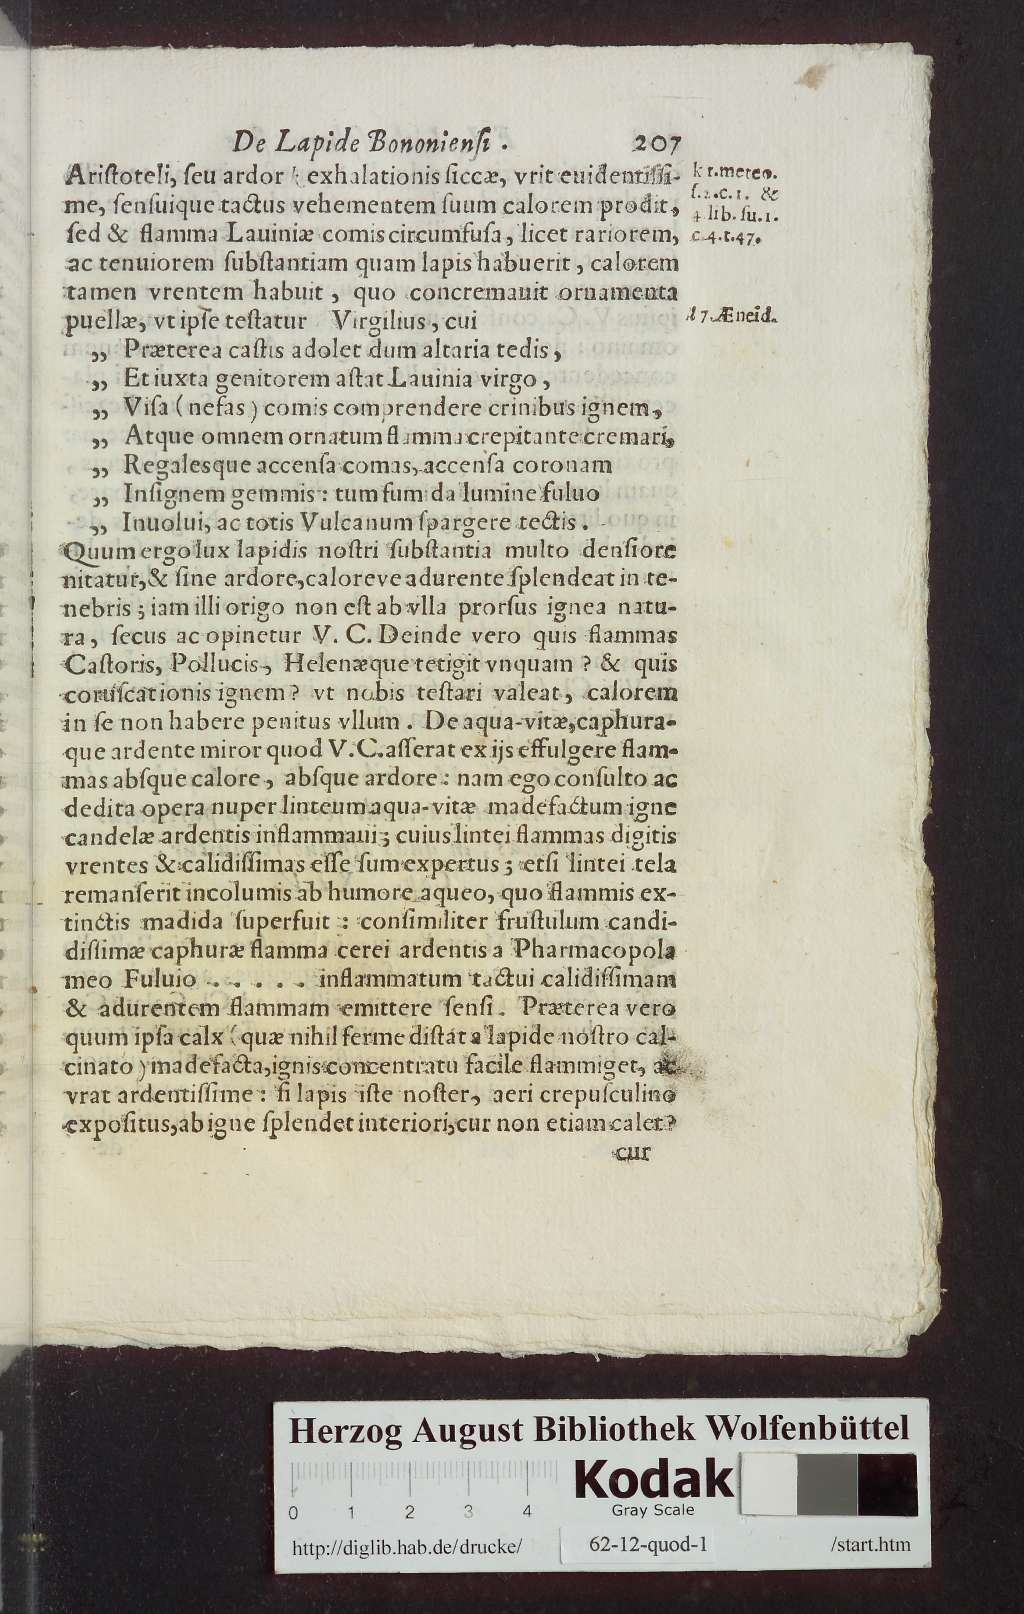 De Lapide Bononienſi . 207
Ariſtoteli, ſeu ardor k exhalationis ſiccæ, vrit euidentiſſi-
me, ſenſuique tactus vehementem ſuum calorem prodit,
ſed & flamma Lauiniæ comis circumfuſa, licet rariorem,
ac tenuiorem ſubſtantiam quam lapis habuerit, calorem
tamen vrentem habuit, quo concremauit ornamenta
puellæ, vt ipſe teſtatur Virgilius, cui
„ Præterea caſtis adolet dum altaria tedis,
„ Et iuxta genitorem aſtat Lauinia virgo,
„ Viſa (nefas) comis comprendere crinibus ignem,
„ Atque omnem ornatum flamma crepitante cremari,
„ Regaleſque accenſa comas, accenſa coronam
„ Inſignem gemmis: tum fumida lumine fuluo
„ Inuolui, ac totis Vulcanum ſpargere tectis.
Quum ergo lux lapidis noſtri ſubſtantia multo denſiore
nitatur, & ſine ardore, caloreve adurente ſplendeat in te-
nebris; iam illi origo non eſt ab vlla prorſus ignea natu-
ra, ſecus ac opinetur V. C. Deinde vero quis flammas
Caſtoris, Pollucis, Helenæque tetigit vnquam? & quis
coruſcationis ignem? vt nobis teſtari valeat, calorem
in ſe non habere penitus vllum. De aqua-vitæ, caphura-
que ardente miror quod V. C. aſſerat ex ijs effulgere flam-
mas abſque calore, abſque ardore: nam ego conſulto ac
dedita opera nuper linteum aqua-vitæ madefactum igne
candelæ ardentis inflammaui; cuius lintei flammas digitis
vrentes & calidiſſimas eſſe ſum expertus; etſi lintei tela
remanſerit incolumis ab humore aqueo, quo flammis ex-
tinctis madida ſuperfuit: conſimiliter fruſtulum candi-
diſſimæ caphuræ flamma cerei ardentis a Pharmacopola
meo Fuluio . . . . . inflammatum tactui calidiſſimam
& adurentem flammam emittere ſenſi. Præterea vero
quum ipſa calx (quæ nihil ferme diſtat a lapide noſtro cal-
cinato) madefacta, ignis concentratu facile flammiget, ac
vrat ardentiſſime: ſi lapis iſte noſter, aeri crepuſculino
expoſitus, ab igne ſplendet interiori, cur non etiam calet?
cur
k 1. meteo.
ſ. 2. c. 1. &
4 lib. ſu. 1.
c. 4. t. 47.
l 7. Æneid.
Herzog August Bibliothek Wolfenbüttel
0 1 2 3 4
Kodak
Gray Scale
http://diglib.hab.de/drucke/ 62-12-quod-1 /start.htm